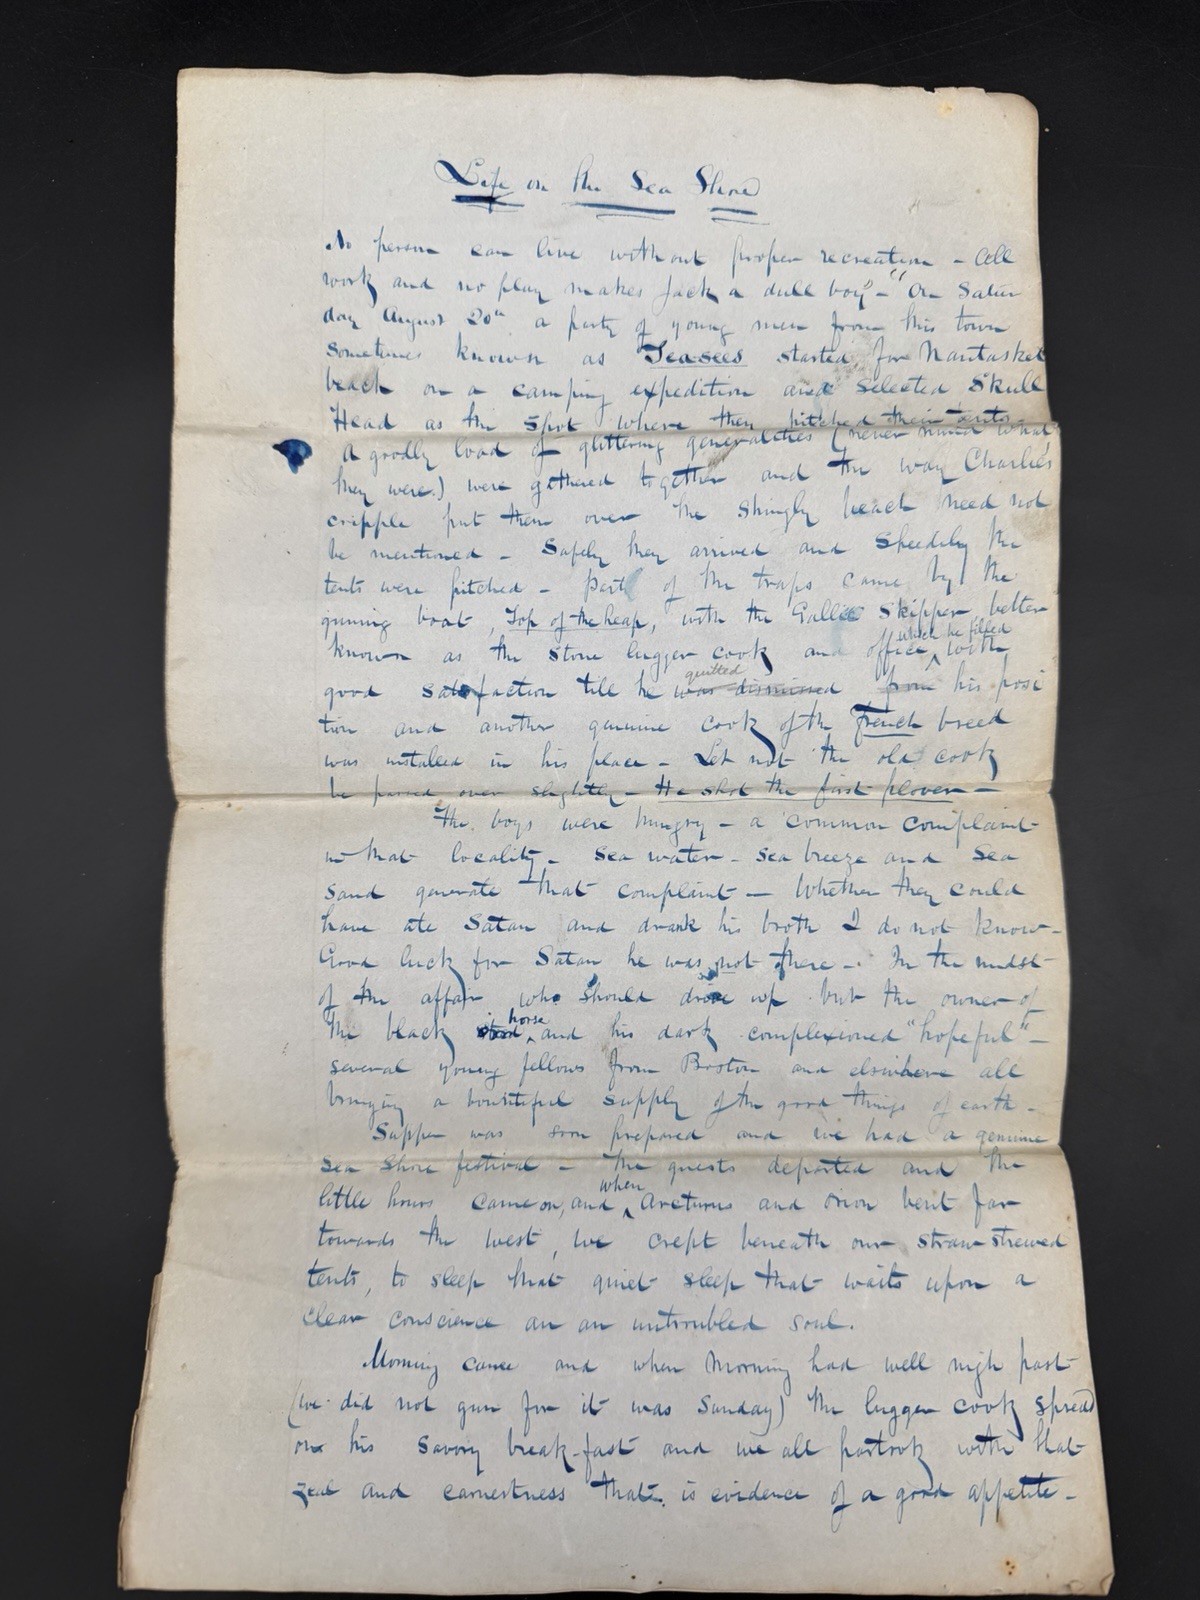 Life on the Sea Shore
No person can live without proper recreation - All
work and no play makes Jack a dull boy" - "On Satur
day August 20th a party of young men from this town
sometimes known as Teasees started for Nantasket
beach on a camping expedition and selected Skull
Head as the spot where they pitched their tents
A goodly load of glittering generalities (never mind what
they were.) were gathered together and the way Charlie's
cripple put them over the shingly beach need not
be mentioned - Safely they arrived and speedily the
tents were pitched - Part of the traps came by the
gunning boat, Top of the heap, with the Gallic Skipper better
known as the stone lugger cook and office which he filled with
good satisfaction till he quitted was dismissed from his posi
tion and another genuine cook of the french breed
was installed in his place - Let not the old cook
be passed over slightly - He shot the first plover -
The boys were hungry - a common complaint
in that locality - Sea water - sea breeze and Sea
sand generate that complaint - Whether they could
have ate Satan and drank his broth I do not know -
Good luck for Satan he was not there - In the midst
of the affair who should drive up but the owner of
the black horse and his dark complexioned "hopeful" -
several young fellows from Boston and elsewhere all
bringing a bountiful supply of the good things of earth -
Supper was soon prepared and we had a genuine
Sea Shore festival - The guests departed and the
little hours came on, and when Arcturus and Orion bent far
towards the west, we crept beneath our straw strewed
tents, to sleep that quiet sleep that waits upon a
clear conscience an an untroubled soul.
Morning came and when morning had well nigh past
(we did not gun for it was Sunday) the lugger cook spread
on his savory break-fast and we all partook with that
zeal and earnestness that is evidence of a good appetite -